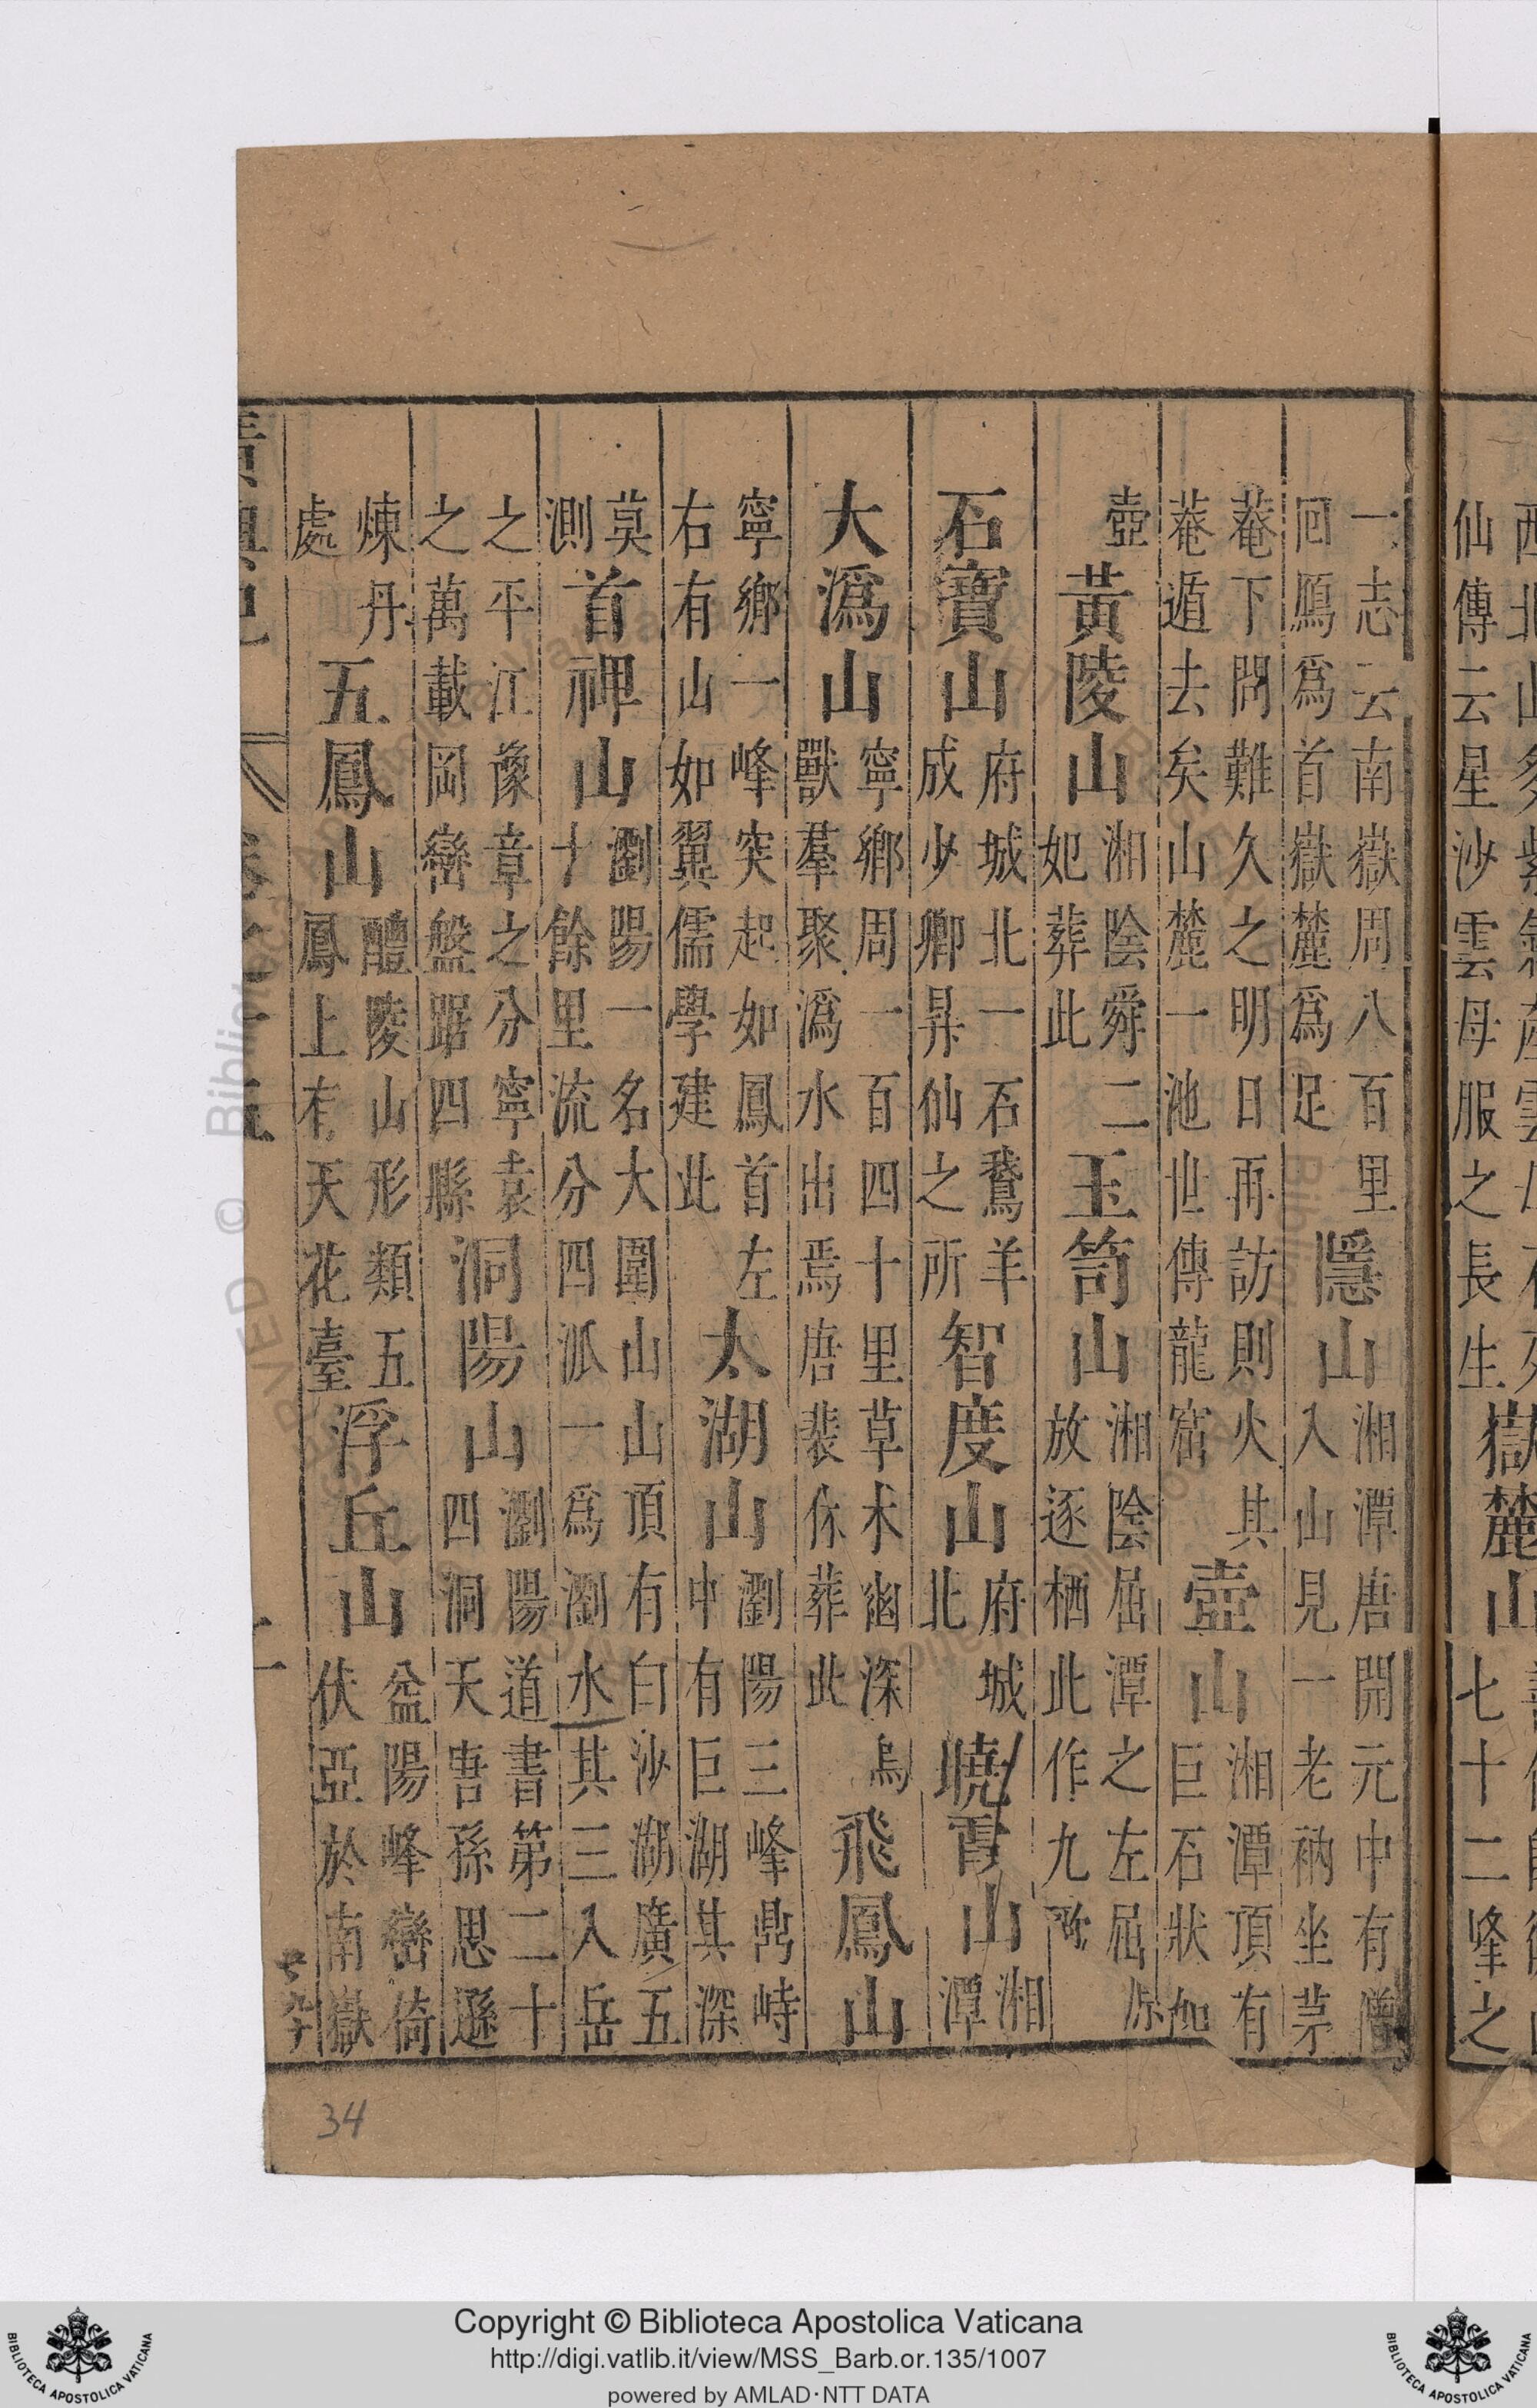 仙傳云星沙雲母服之長生
嶽麓山
七十二峰之
一志云南嶽周八百里
回鴈爲首嶽麓爲足
隱山
湘潭唐開元中有僧
入山見一老衲坐茅
菴下問難久之明日再訪則火其
菴遁去矣山麓一池世傳龍窟
壺山
湘潭頂有
巨石狀如
壺
黃陵山
湘陰舜二
妃葬此
玉笥山
湘陰屈潭之左屈原
放逐栖此作九歌
石寶山
府城北一石鵞羊
成少卿昇仙之所
智度山
府城
北
曉山
湘
潭
大潙山
寧鄉周一百四十里草木幽深烏
獸羣聚潙水出焉唐裴休葬此
飛鳳山
寧鄉一峰突起如鳳首左
右有山如翼儒學建此
太湖山
瀏陽三峰鼎峙
中有巨湖其深
莫
測
首禆山
瀏陽一名大圍山山頂有白沙湖廣五
十餘里流分四派一爲瀏水其三入岳
之平江豫章之分寧袁
之萬載岡巒盤踞四縣
洞陽山
瀏陽道書第二十
四洞天唐孫思邈
煉丹
處
五鳳山
醴陵山形類五
鳳上有天花臺
浮丘山
益陽峰巒倚
伏亞於南嶽
34
Copyright © Biblioteca Apostolica Vaticana
http://digi.vatlib.it/view/MSS_Barb.or.135/1007
powered by AMLAD·NTT DATA
BIBLIOTECA APOSTOLICA VATICANA
BIBLIOTECA APOSTOLICA VATICANA